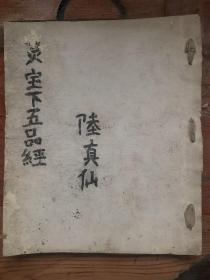 灵宝下五品經
陸真仙